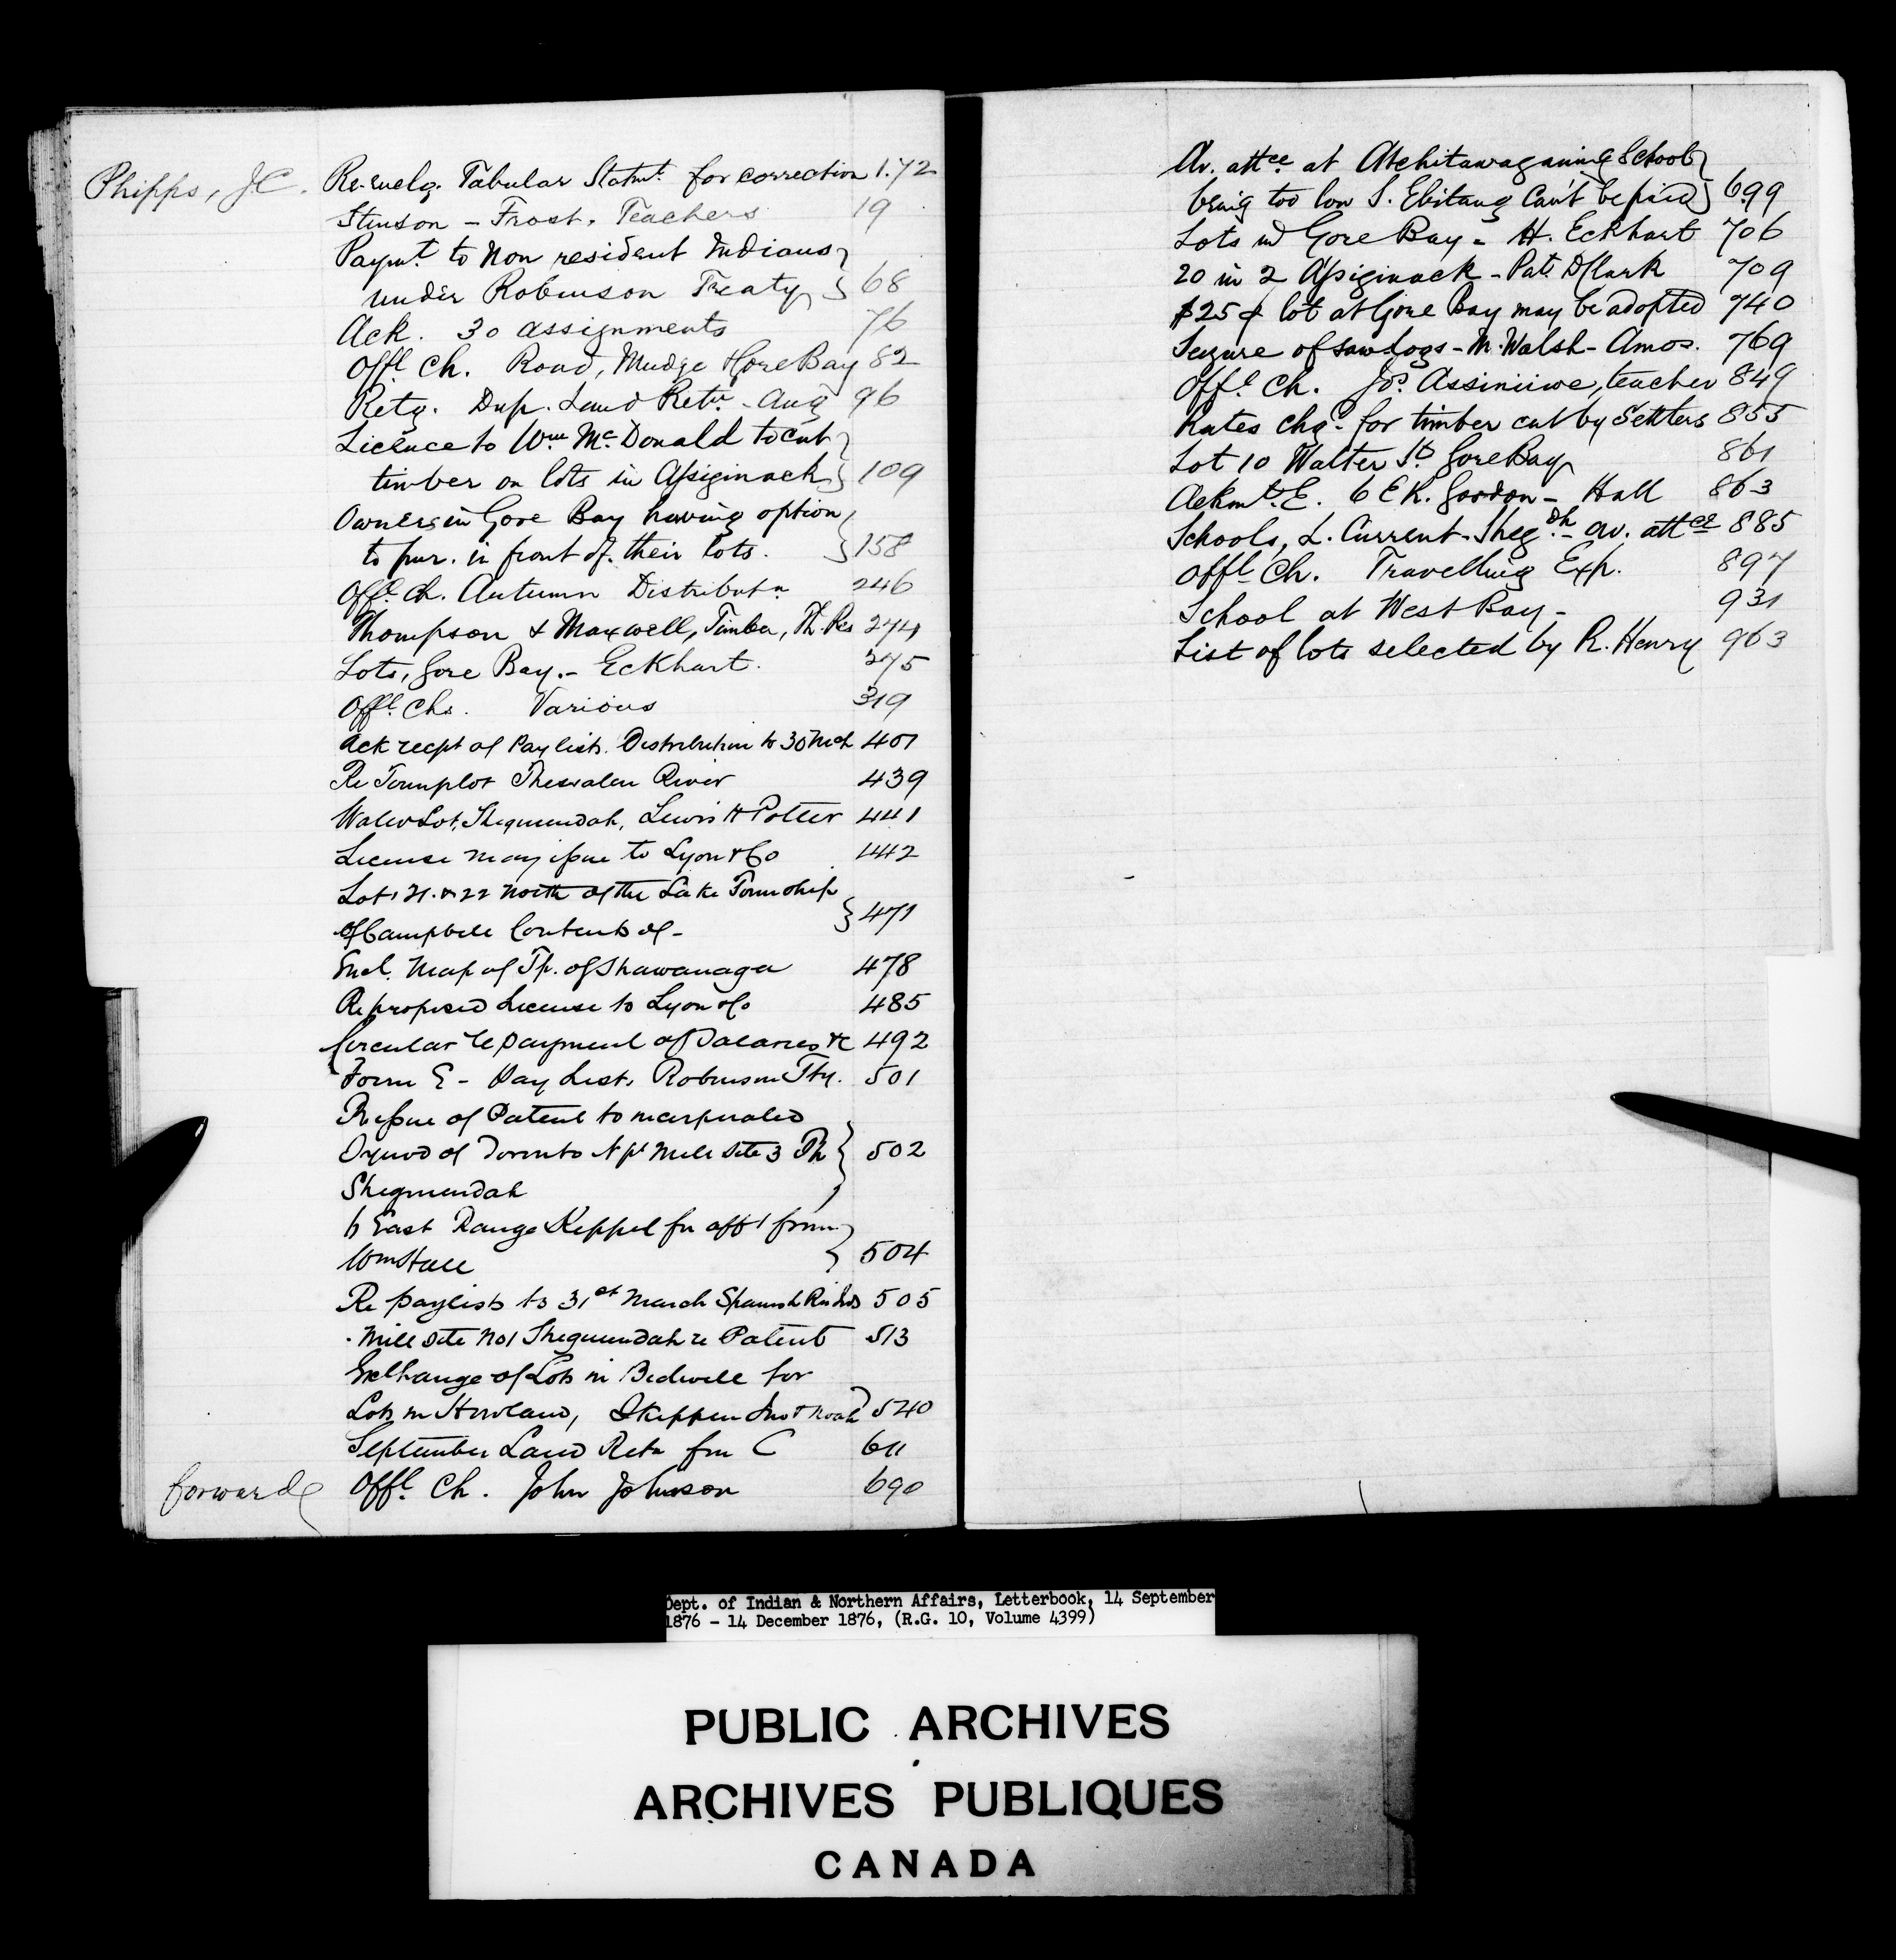 Phipps, J.C. Re-enclg. Tabular Statmt. for correction 1.72
Stinson - Frost. Teachers 19
Paymt. to Non resident Indians
under Robinson Treaty 68
Ack. 30 assignments 76
Offl. Ch. Road, Mudge & Gore Bay 82
Retg. Dup. Land Retn. - Aug 96
Licence to Wm. McDonald to cut
timber on lots in Assiginack 109
Owners in Gore Bay having option
to pur. in front of their lots. 158
Offl. Ch. Autumn Distributn 246
Thompson & Maxwell, Timber, Th. Res 274
Lots, Gore Bay. - Eckhart. 275
Offl. Chs. Various 319
Ack recpt of Pay lists. Distribution to 30 Mch 401
Re Townplot Thessalon River 439
Water Lot, Sheguiendah, Lewis H Potter 441
License may issue to Lyon & Co 442
Lots 21. & 22 North of the Lake Township
of Campbell Contents of - 471
Encl. Map of Tp. of Shawanaga 478
Re proposed License to Lyon & Co 485
Circular re payment of Salaries &c 492
Form E - Pay List, Robinson Tty. 501
Re issue of Patent to incorporated
Synod of Toronto N pt Mill Site 3 Th
Shegiuendah 502
6 East Range Keppel for aff t from
Wm Hall 504
Re paylists to 31st March Spanish Riv Inds 505
Mill Site No 1 Sheguiendah re Patent 513
Exchange of Lots in Bidwell for
Lots in Howland, Skippen Jno & Noah 540
September Land Retn frm C 611
forward Offl. Ch. John Johnson 690
Av. attce. at Atchitawaganing School
being too low S. Ebitang Can't be paid 699
Lots in Gore Bay - H. Eckhart 706
20 in 2 Assiginack - Pat. D Clark 709
$25 lot at Gore Bay may be adopted 740
Seizure of saw logs - M. Walsh - Amos. 769
Offl. Ch. Jos. Assiniiwe, teacher 849
Rates chgd. for timber cut by Settlers 855
Lot 10 Walter St. Gore Bay 861
Ackmt. E. 6 E K. Gordon - Hall 863
Schools, L. Current - Shegdh. - av. attce 885
Offl. Ch. Travelling Exp. 897
School at West Bay - 931
List of lots selected by R. Henry 963
Dept. of Indian & Northern Affairs, Letterbook, 14 September
1876 - 14 December 1876, (R.G. 10, Volume 4399)
PUBLIC ARCHIVES
ARCHIVES PUBLIQUES
CANADA